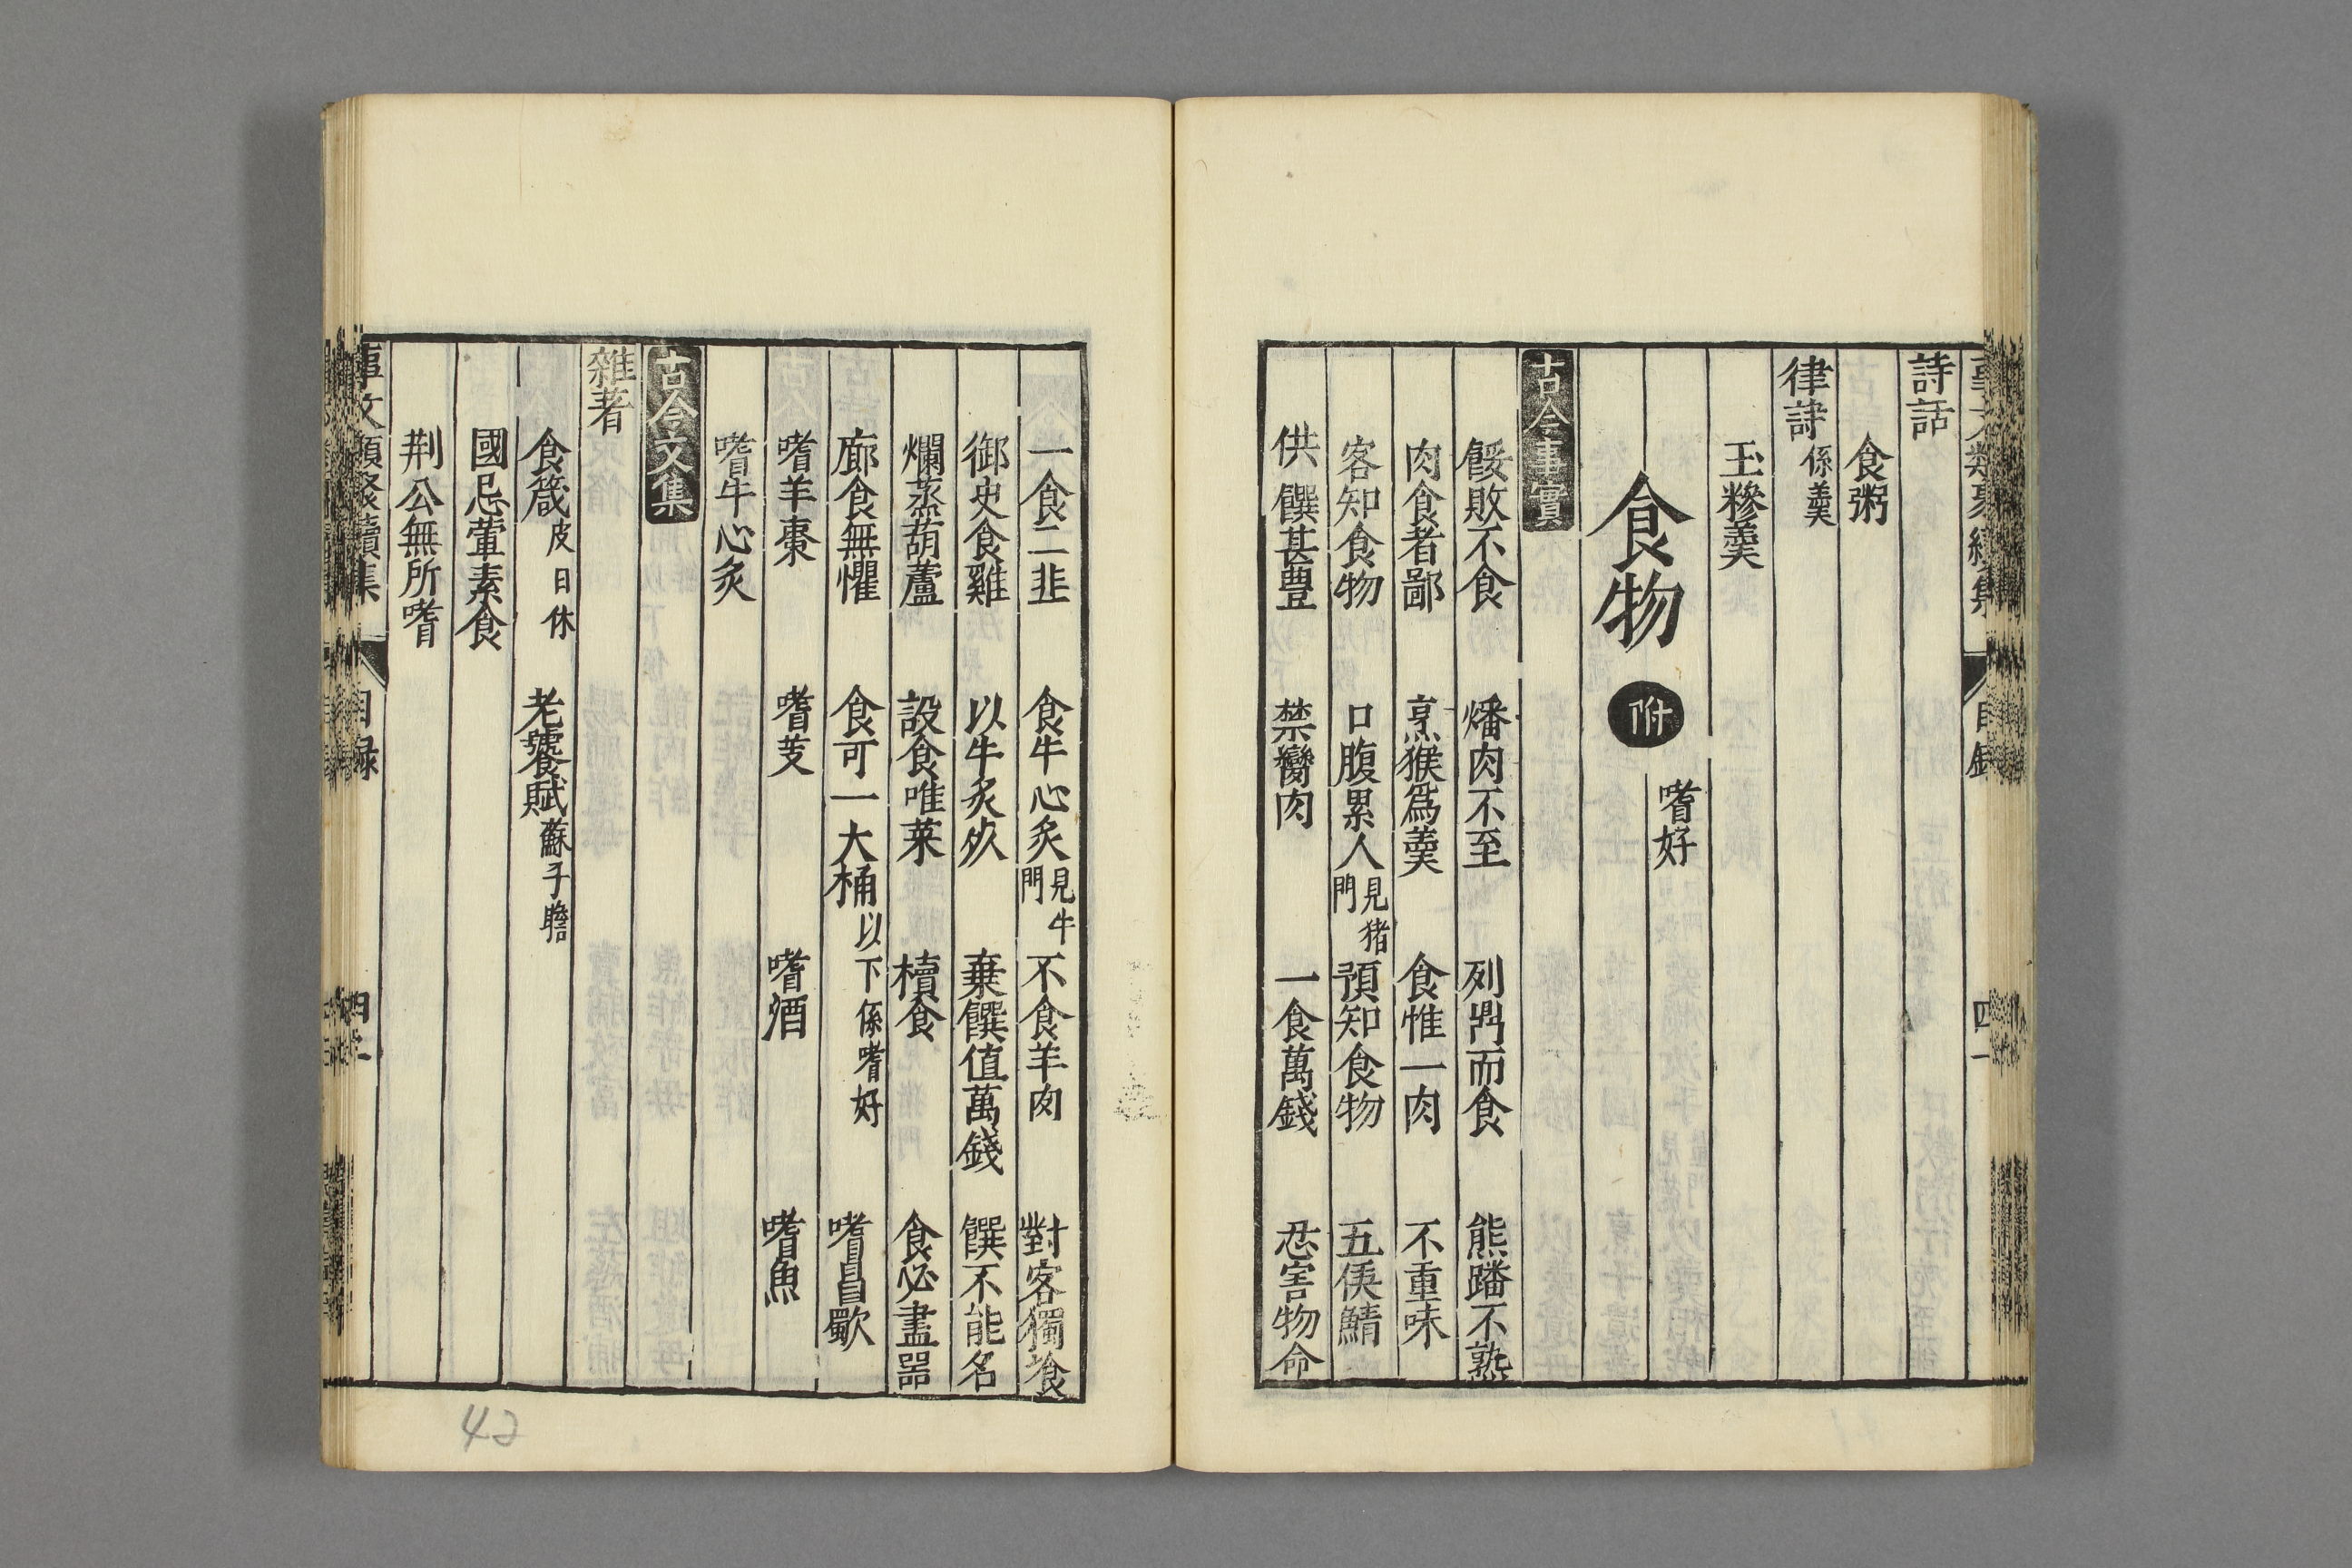 詩話
食粥
律詩 係羹
玉糝羹
食物 附 嗜好
古今事實
餒敗不食 燔肉不至 列鼎而食 熊蹯不熟
肉食者鄙 烹猴爲羹 食惟一肉 不重味
客知食物 口腹累人 見猪門 預知食物 五侯鯖
供饌甚豊 禁臠肉 一食萬錢 忍害物命
一食二韭 食牛心炙 見牛門 不食羊肉 對客獨飡
御史食雞 以牛炙欤 棄饌值萬錢 饌不能名
爛蒸葫蘆 設食唯菜 櫝食 食必盡器
廊食無懼 食可一大桶 以下係嗜好 嗜昌歜
嗜羊棗 嗜芰 嗜酒 嗜魚
嗜牛心炙
古今文集
雜著
食箴 皮日休 老饕賦 蘇子瞻
國忌葷素食
荆公無所嗜
事文類聚續集 目録
42